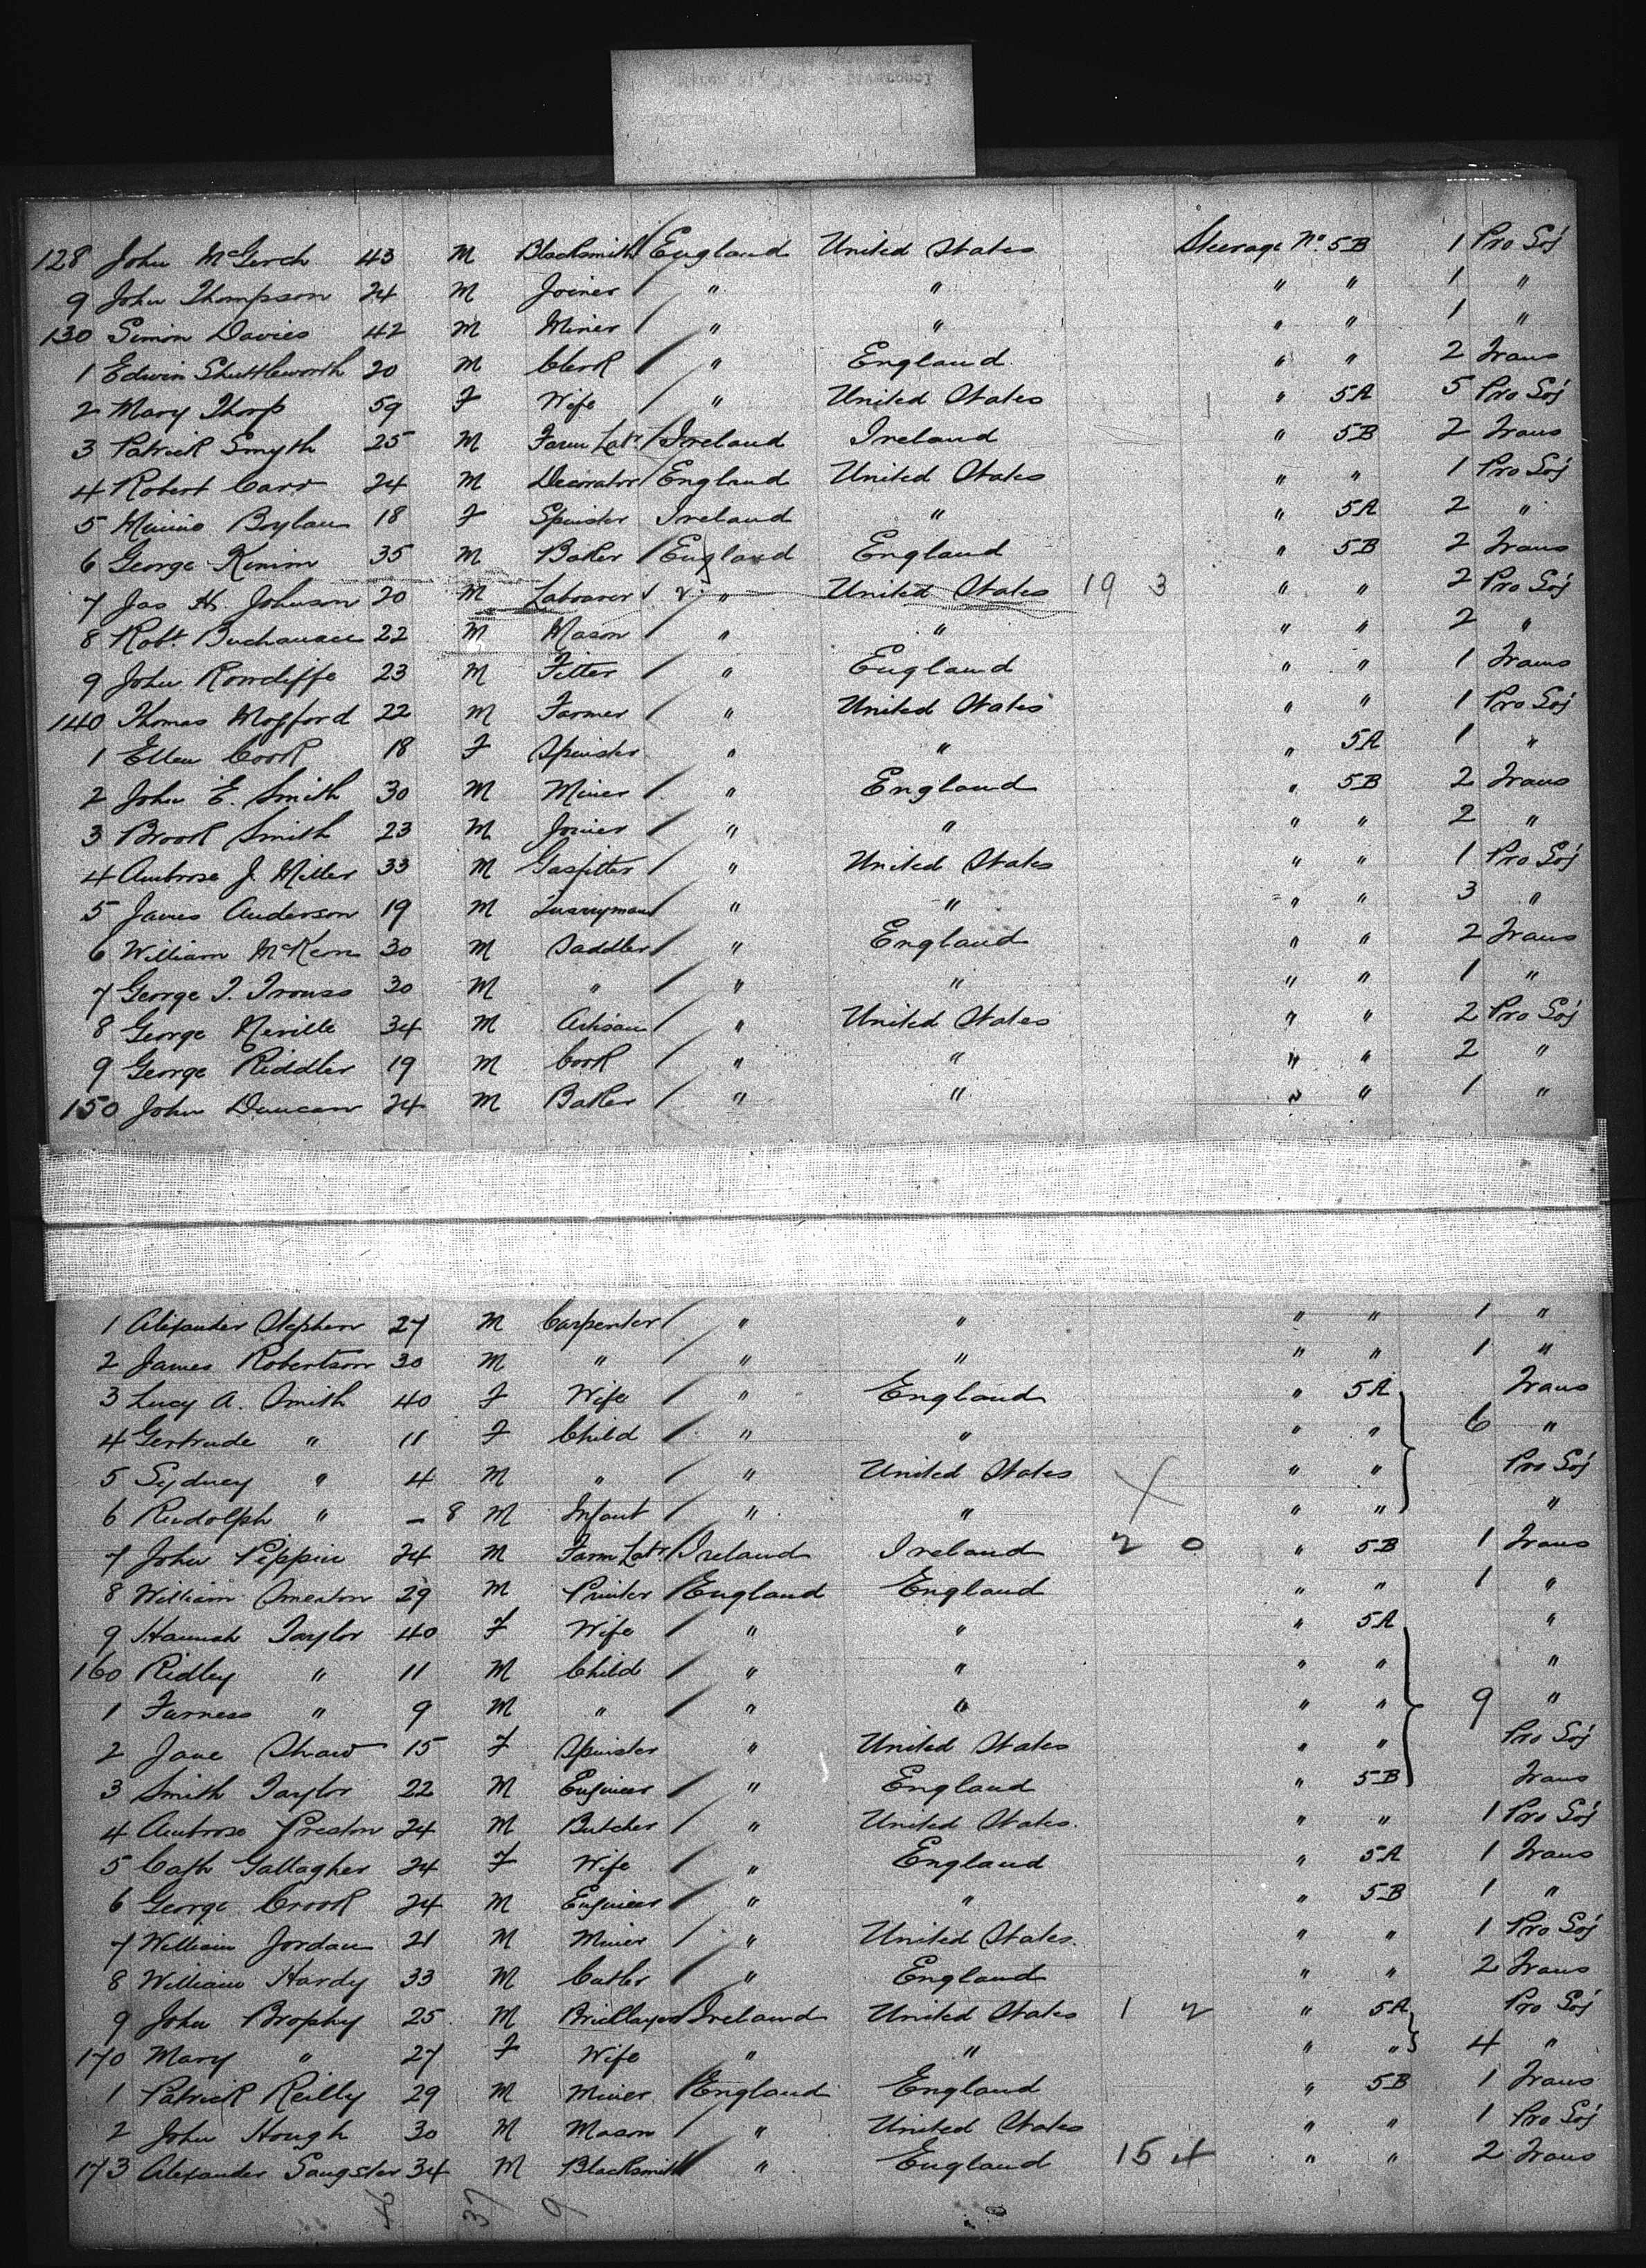 128 John McGerch 43 M Blacksmith England United States Steerage No. 5B 1 Pro Soj
9 John Thompson 24 M Joiner " " " " 1 "
130 Simon Davies 42 M Miner " " " " 1 "
1 Edwin Shuttleworth 20 M Clerk " England " " 2 Trans
2 Mary Thorp 59 F Wife " United States " 5A 5 Pro Soj
3 Patrick Smyth 25 M Farm Labr Ireland Ireland " 5B 2 Trans
4 Robert Carr 24 M Decorator England United States " " 1 Pro Soj
5 Minnie Boylan 18 F Spinster Ireland " " 5A 2 "
6 George Kinim 35 M Baker England England " 5B 2 Trans
7 Jas H. Johnson 20 M Labourer " United States 19 3 " " 2 Pro Soj
8 Robt. Buchanan 22 M Mason " " " " 2 "
9 John Rowcliffe 23 M Fitter " England " " 1 Trans
140 Thomas Mogford 22 M Farmer " United States " " 1 Pro Soj
1 Ellen Cook 18 F Spinster " " " 5A 1 "
2 John E. Smith 30 M Miner " England " 5B 2 Trans
3 Brook Smith 23 M Joiner " " " " 2 "
4 Ambrose J. Miller 33 M Gasfitter " United States " " 1 Pro Soj
5 James Anderson 19 M Quarryman " " " " 3 "
6 William McKern 30 M Saddler " England " " 2 Trans
7 George T. Trouss 30 M " " " " " 1 "
8 George Neville 34 M Artisan " United States " " 2 Pro Soj
9 George Riddler 19 M Cook " " " " 2 "
150 John Duncan 24 M Baker " " " " 1 "
1 Alexander Stephen 27 M Carpenter " " " " 1 "
2 James Robertson 30 M " " " " " 1 "
3 Lucy A. Smith 40 F Wife " England " 5A Trans
4 Gertrude " 11 F Child " " " " 6 "
5 Sydney " 4 M " " United States " " Pro Soj
6 Rudolph " - 8 M Infant " " " " "
7 John Pippin 24 M Farm Labr Ireland Ireland 2 0 " 5B 1 Trans
8 William Smeaton 29 M Printer England England " " 1 "
9 Hannah Taylor 40 F Wife " " " 5A "
160 Ridley " 11 M Child " " " " "
1 Furness " 9 M " " " " " 9 "
2 Jane Shaw 15 F Spinster " United States " " Pro Soj
3 Smith Taylor 22 M Engineer " England " 5B Trans
4 Ambrose Preston 24 M Butcher " United States. " " 1 Pro Soj
5 Cath Gallagher 24 F Wife " England " 5A 1 Trans
6 George Crook 24 M Engineer " " " 5B 1 "
7 William Jordan 21 M Miner " United States. " " 1 Pro Soj
8 William Hardy 33 M Cutler " England " " 2 Trans
9 John Brophy 25 M Bricklayer Ireland United States 1 2 " 5A Pro Soj
170 Mary " 27 F Wife " " " " 4 "
1 Patrick Reilly 29 M Miner England England " 5B 1 Trans
2 John Hough 30 M Mason " United States " " 1 Pro Soj
173 Alexander Sangster 34 M Blacksmith " England 15 4 " " 2 Trans
37 9